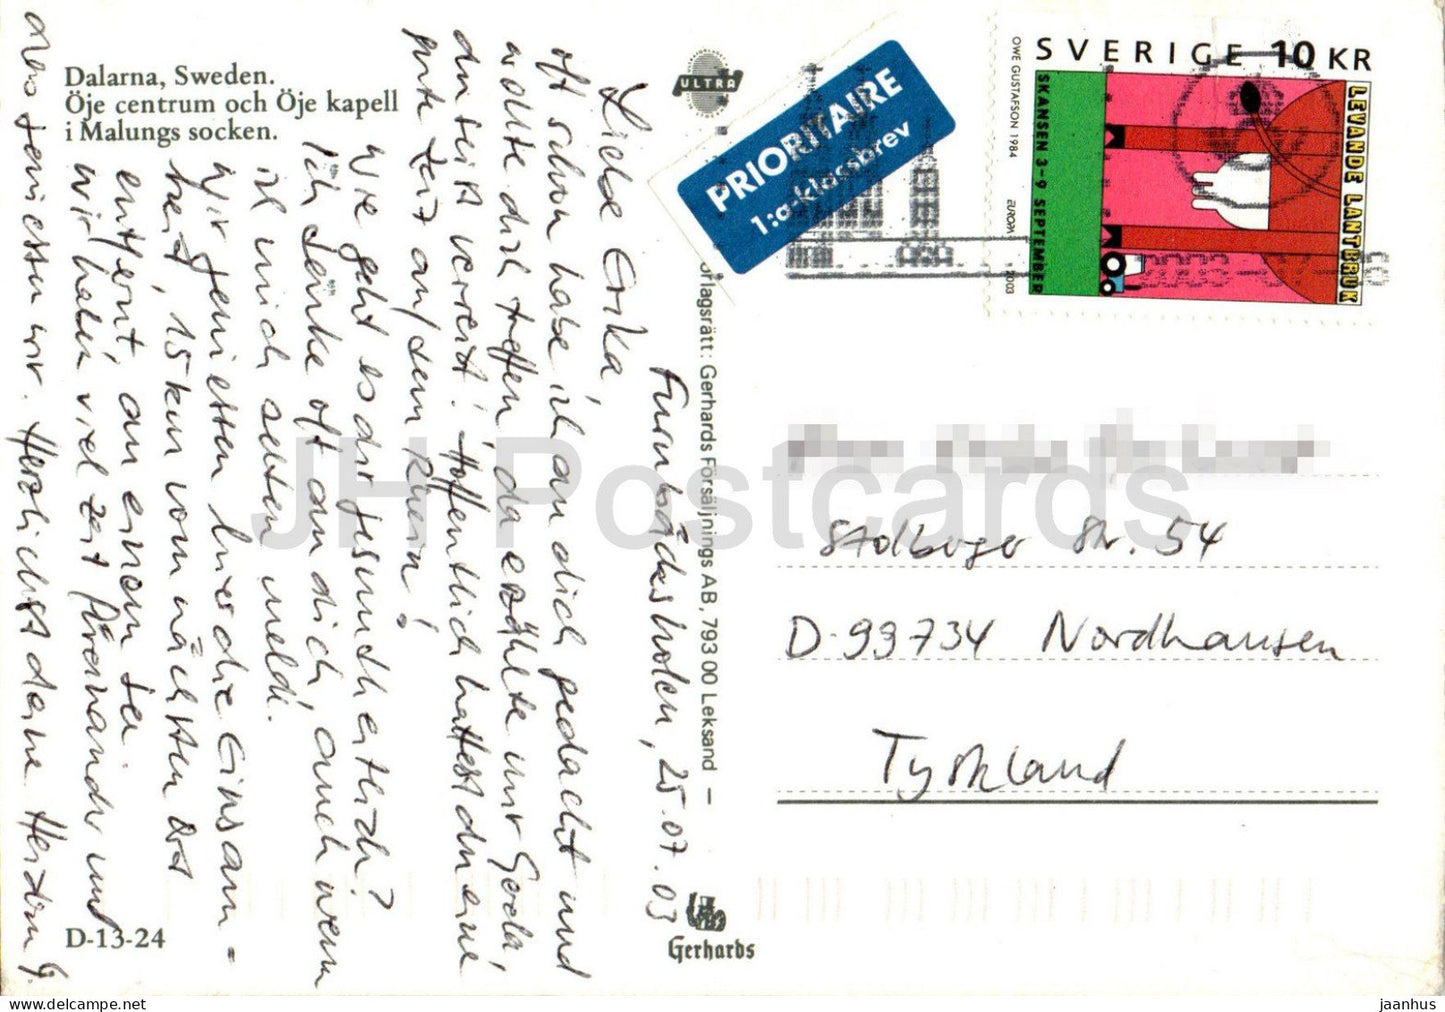 Dalarna, Sweden.
Öje centrum och Öje kapell
i Malungs socken.
ULTRA
PRIORITAIRE
1:a-klassbrev
SVERIGE 10 KR
OWE GUSTAFSON 1984
EUROPA
2003
SKANSEN 3-9 SEPTEMBER
LEVANDE LANTBRUK
Furnbäcksholen, 25.07.03
Liebe Erika,
oft schon habe ich an dich gedacht und
wollte dich treffen, da erzählte mir Gerda,
du seist verreist! Hoffentlich hattest du eine
gute Zeit auf dem Rhein!
Wie geht es dir gesundheitlich?
Ich denke oft an dich, auch wenn
ich mich selten meld.
Wir genießen hier die Einsam-
keit, 15 km vom nächsten Ort
entfernt, an einem See.
Wir haben viel Zeit füreinander und
das genießen wir. Herzlichst deine Heidim G.
orlagsrätt: Gerhards Försäljnings AB, 793 00 Leksand –
Stolberger Str. 54
D-99734 Nordhausen
Tyskland
D-13-24
Gerhards
JH Postcards
jaanhus